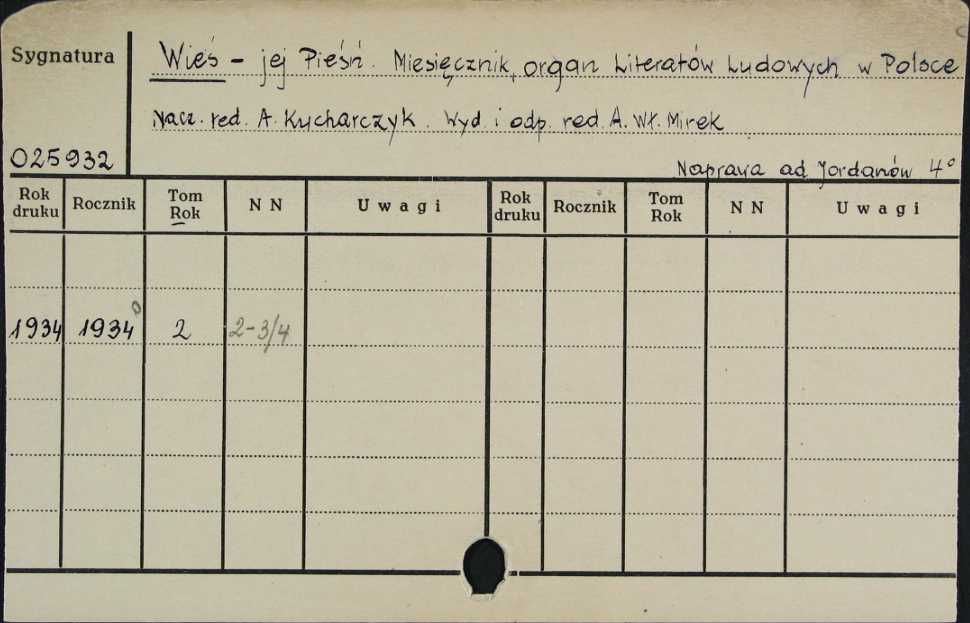 Sygnatura
Wieś - jej Pieśń. Miesięcznik, organ Literatów Ludowych w Polsce
Nacz. red. A. Kucharczyk. Wyd. i odp. red. A. Wł. Mirek
025932
Naprawa ad Jordanów 4°
Rok druku Rocznik Tom Rok N N Uwagi Rok druku Rocznik Tom Rok N N Uwagi
1934 1934 2 2-3/4